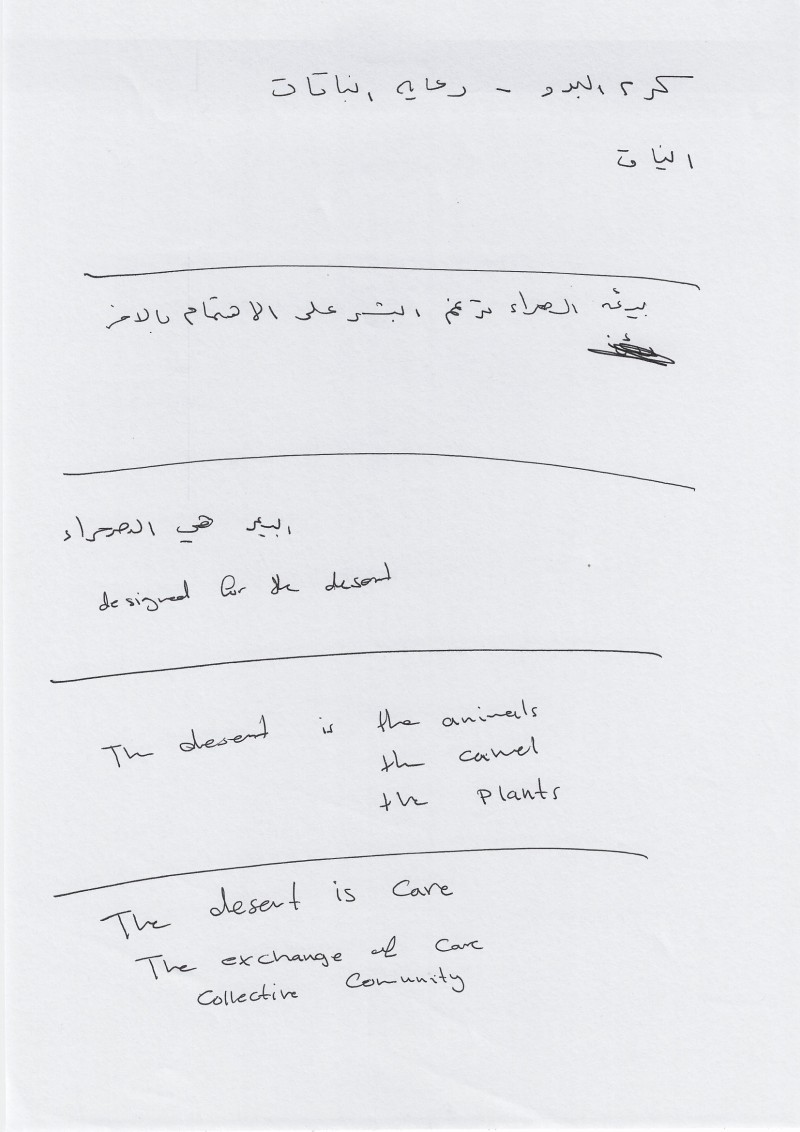 كرم البدو - رعايه النباتات
النباق
بيئة الصحراء ترغم البشر على الاهتمام بالاخر
البعير هي الصحراء
designed for the desert
The desert is the animals
the camel
the plants
The desert is care
The exchange of care
collective Comunity